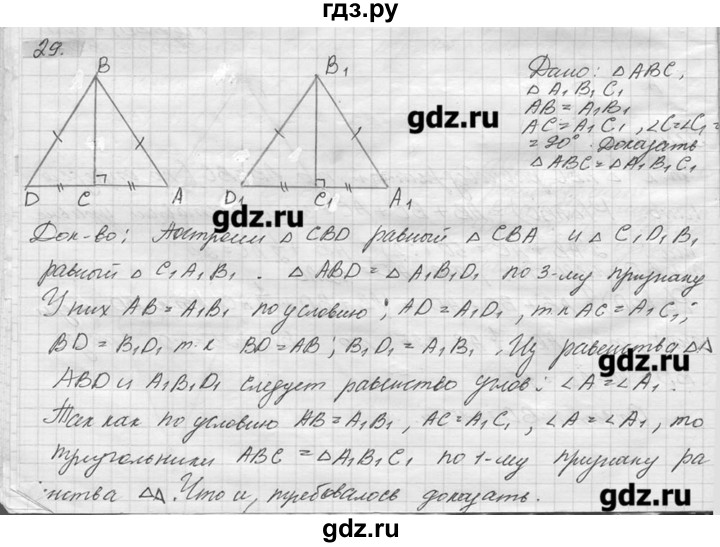 гдз.ру
29.
B
B₁
D
C
A
D₁
C₁
A₁
Дано: △ABC,
△A₁B₁C₁
AB = A₁B₁
AC = A₁C₁, ∠C=∠C₁=
= 90°. Доказать
△ABC = △A₁B₁C₁
gdz.ru
gdz.ru
Док-во: Построим △CBD равный △CBA и △C₁D₁B₁
равный △C₁A₁B₁. △ABD = △A₁B₁D₁ по 3-му признаку
У них AB = A₁B₁ по условию; AD = A₁D₁, т.к AC = A₁C₁;
BD = B₁D₁ т.к BD = AB; B₁D₁ = A₁B₁. Из равенства △△
ABD и A₁B₁D₁ следует равенство углов: ∠A = ∠A₁.
Так как по условию AB = A₁B₁, AC = A₁C₁, ∠A = ∠A₁, то
треугольники ABC = △A₁B₁C₁ по 1-му признаку ра-
нства △△. Что и, требовалось доказать.
gdz.ru
gdz.ru
gdz.ru